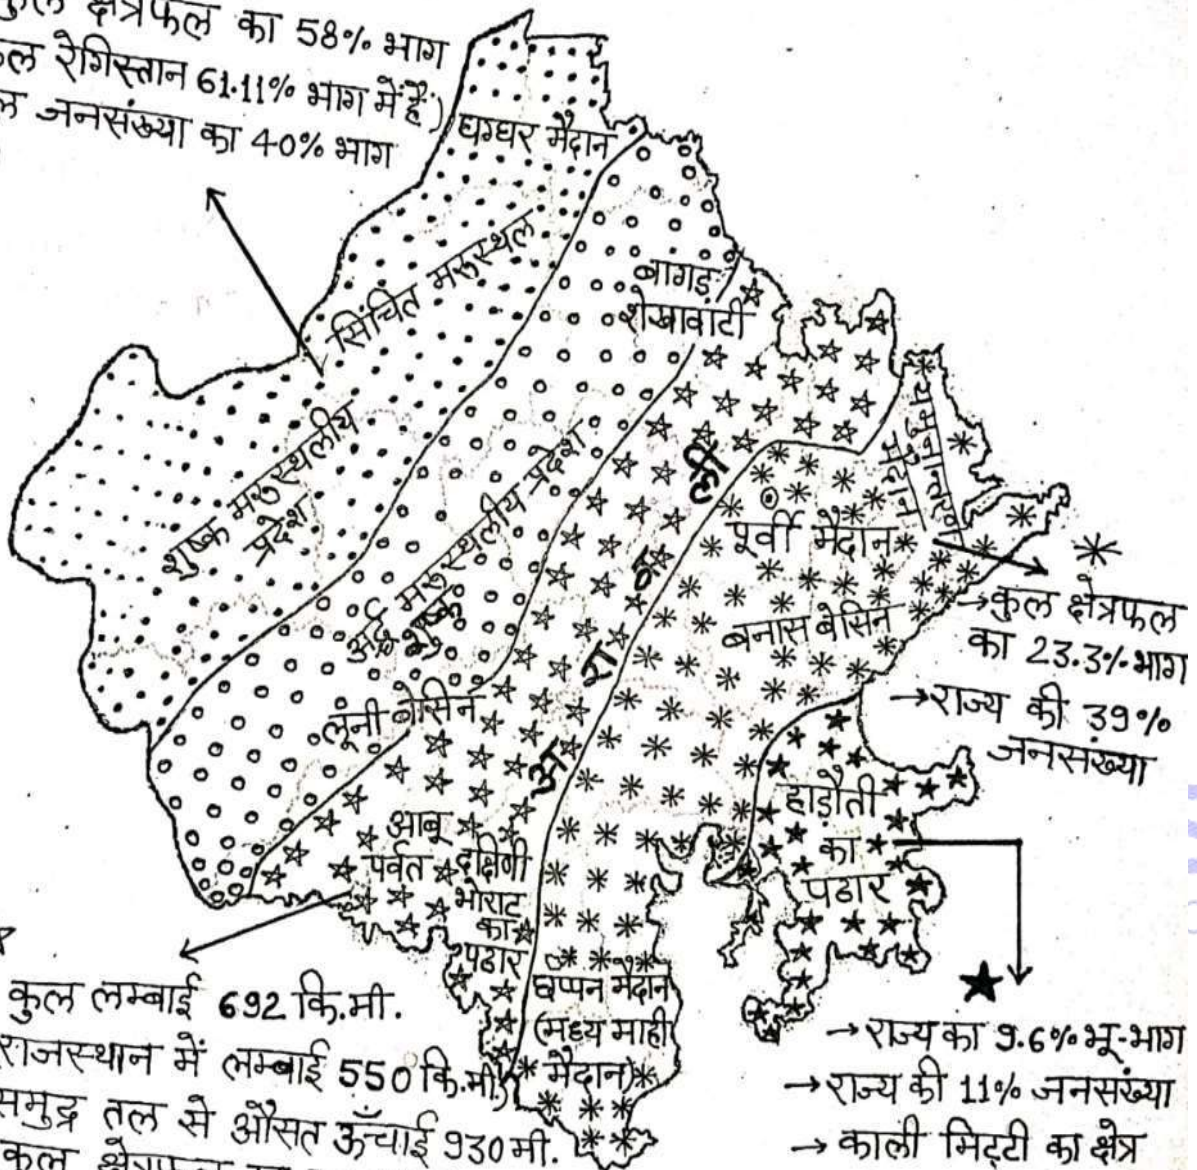 कुल क्षेत्रफल का 58% भाग
रेगिस्तान 61.11% भाग में है)
जनसंख्या का 40% भाग
घग्घर मैदान
सिंचित मरूस्थल
बागड़
शेखावाटी
शुष्क मरुस्थलीय
प्रदेश
अर्द्ध मरुस्थलीय प्रदेश
शुष्क
लूनी बेसिन
अ
रा
व
ली
पूर्वी मैदान
बनास बेसिन
→ कुल क्षेत्रफल
का 23.3% भाग
→ राज्य की 39%
जनसंख्या
हाड़ौती
का
पठार
आबू
पर्वत दक्षिणी
भोराट
का
पठार
छप्पन मैदान
(मध्य माही
मैदान)
कुल लम्बाई 692 कि.मी.
राजस्थान में लम्बाई 550 कि.मी.
समुद्र तल से औसत ऊँचाई 930 मी.
कुल क्षेत्रफल
→ राज्य का 9.6% भू-भाग
→ राज्य की 11% जनसंख्या
→ काली मिट्टी का क्षेत्र